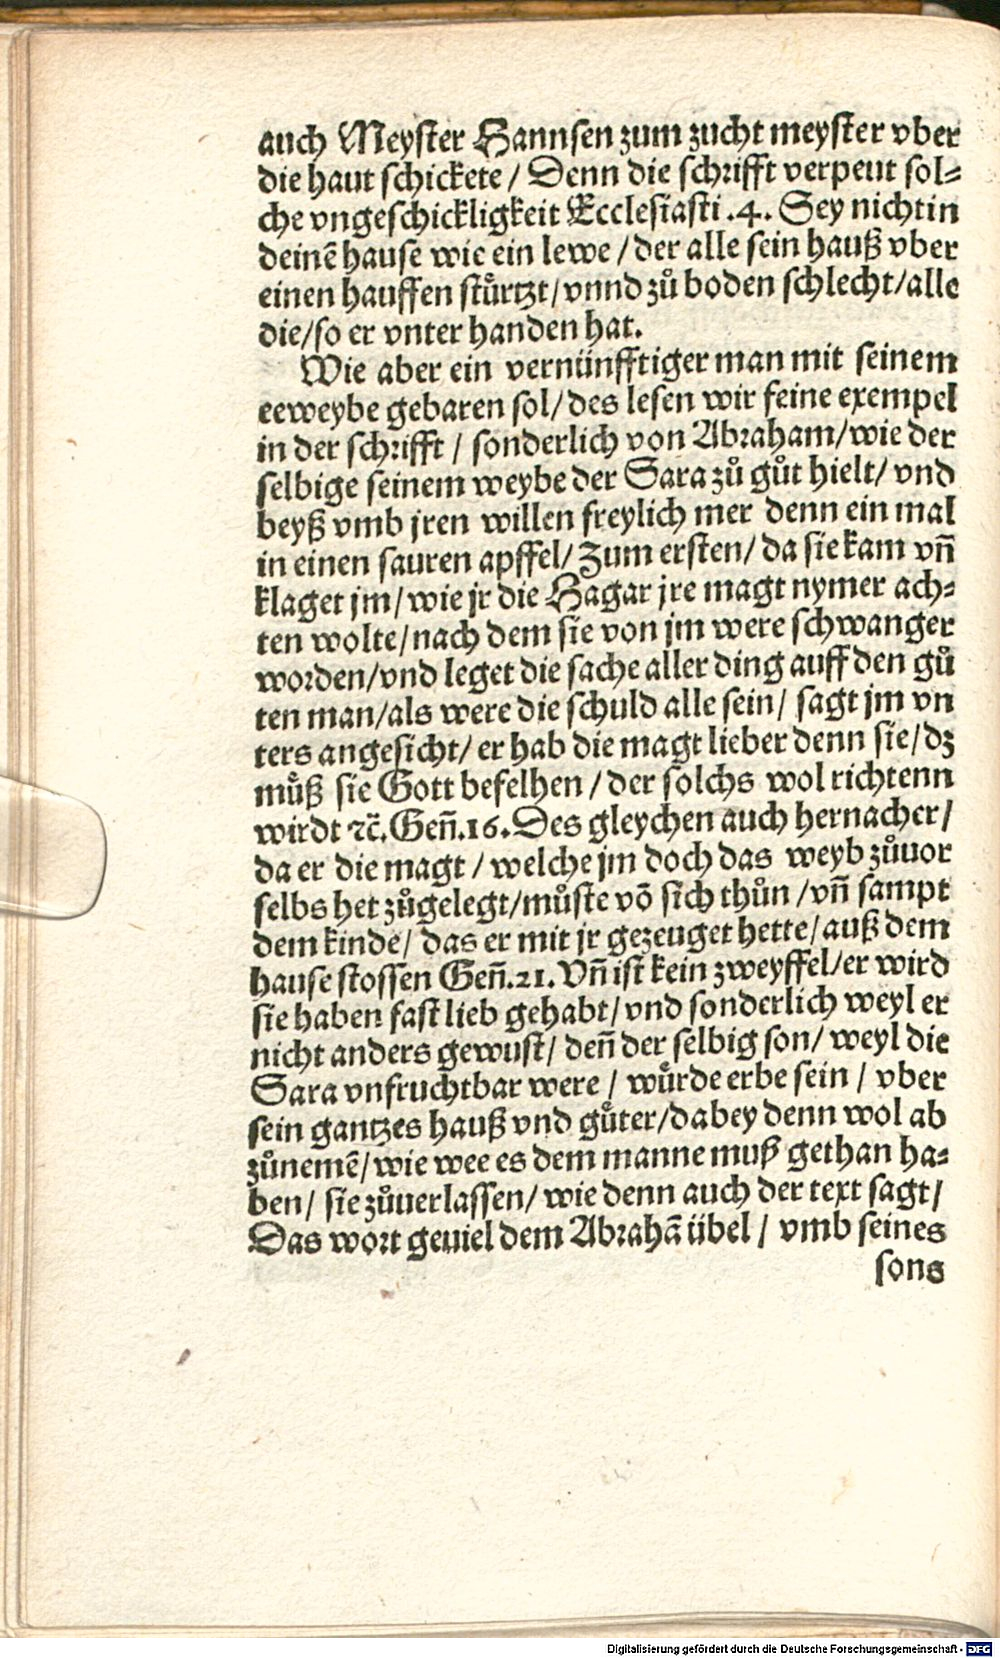 auch Meyster Hannsen zum zucht meyster vber
die haut schickete / Denn die schrifft verpeut sol⸗
che vngeschickligkeit Ecclesiasti .4. Sey nicht in
deinē hause wie ein lewe / der alle sein hauß vber
einen hauffen stuͤrtzt / vnnd zuͦ boden schlecht / alle
die / so er vnter handen hat.
Wie aber ein vernünfftiger man mit seinem
eeweybe gebaren sol / des lesen wir feine exempel
in der schrifft / sonderlich von Abraham / wie der
selbige seinem weybe der Sara zuͦ guͦt hielt / vnd
beyß vmb jren willen freylich mer denn ein mal
in einen sauren apffel / Zum ersten / da sie kam vñ
klaget jm / wie jr die Hagar jre magt nymer ach⸗
ten wolte / nach dem sie von jm were schwanger
worden / vnd leget die sache aller ding auff den guͦ
ten man / als were die schuld alle sein / sagt jm vn
ters angesicht / er hab die magt lieber denn sie / dz
muͤß sie Gott befelhen / der solchs wol richtenn
wirdt ⁊c̃. Geñ.16. Des gleychen auch hernacher /
da er die magt / welche jm doch das weyb zuͦuor
selbs het zuͦgelegt / muͦste võ sich thuͦn / vñ sampt
dem kinde / das er mit jr gezeuget hette / auß dem
hause stossen Geñ.21. Vñ ist kein zweyffel / er wird
sie haben fast lieb gehabt / vnd sonderlich weyl er
nicht anders gewust / deñ der selbig son / weyl die
Sara vnfruchtbar were / wuͤrde erbe sein / vber
sein gantzes hauß vnd guͤter / dabey denn wol ab
zuͦnemē / wie wee es dem manne muß gethan ha⸗
ben / sie zuͦuerlassen / wie denn auch der text sagt /
Das wort geuiel dem Abrahā übel / vmb seines
sons
Digitalisierung gefördert durch die Deutsche Forschungsgemeinschaft - DFG